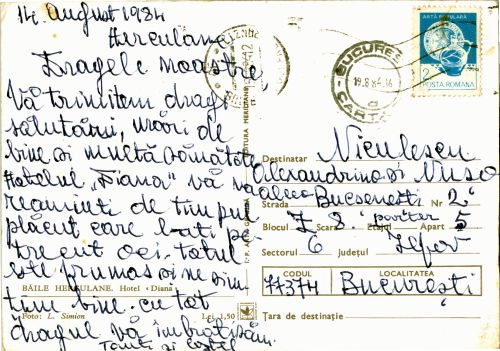 14. August 1984
Herculane
Dragele noastre,
Vă trimitem dragi
salutări, urări de
bine și multă sănătate
Hotelul "Diana" vă va
reaminti de timpul
plăcut care l-ați pe
trecut aci. Totul
este frumos și ne sim
țim bine. cu tot
dragul vă îmbrățișăm
Tanti și Costel
BĂILE HERCULANE. Hotel «Diana»
Foto: L. Simion
Lei 1,50
ARTĂ POPULARĂ
2
POSTA ROMANA
BUCUREȘ
19.8.84.16
CARTA
Destinatar Niculescu
Alexandrina și Nușa
Strada aleea Bucsenesti Nr 2
Blocul Z 8 Scara Etajul parter Apart 5
Sectorul 6 județul Ilfov
CODUL LOCALITATEA
77374 București
Țara de destinație